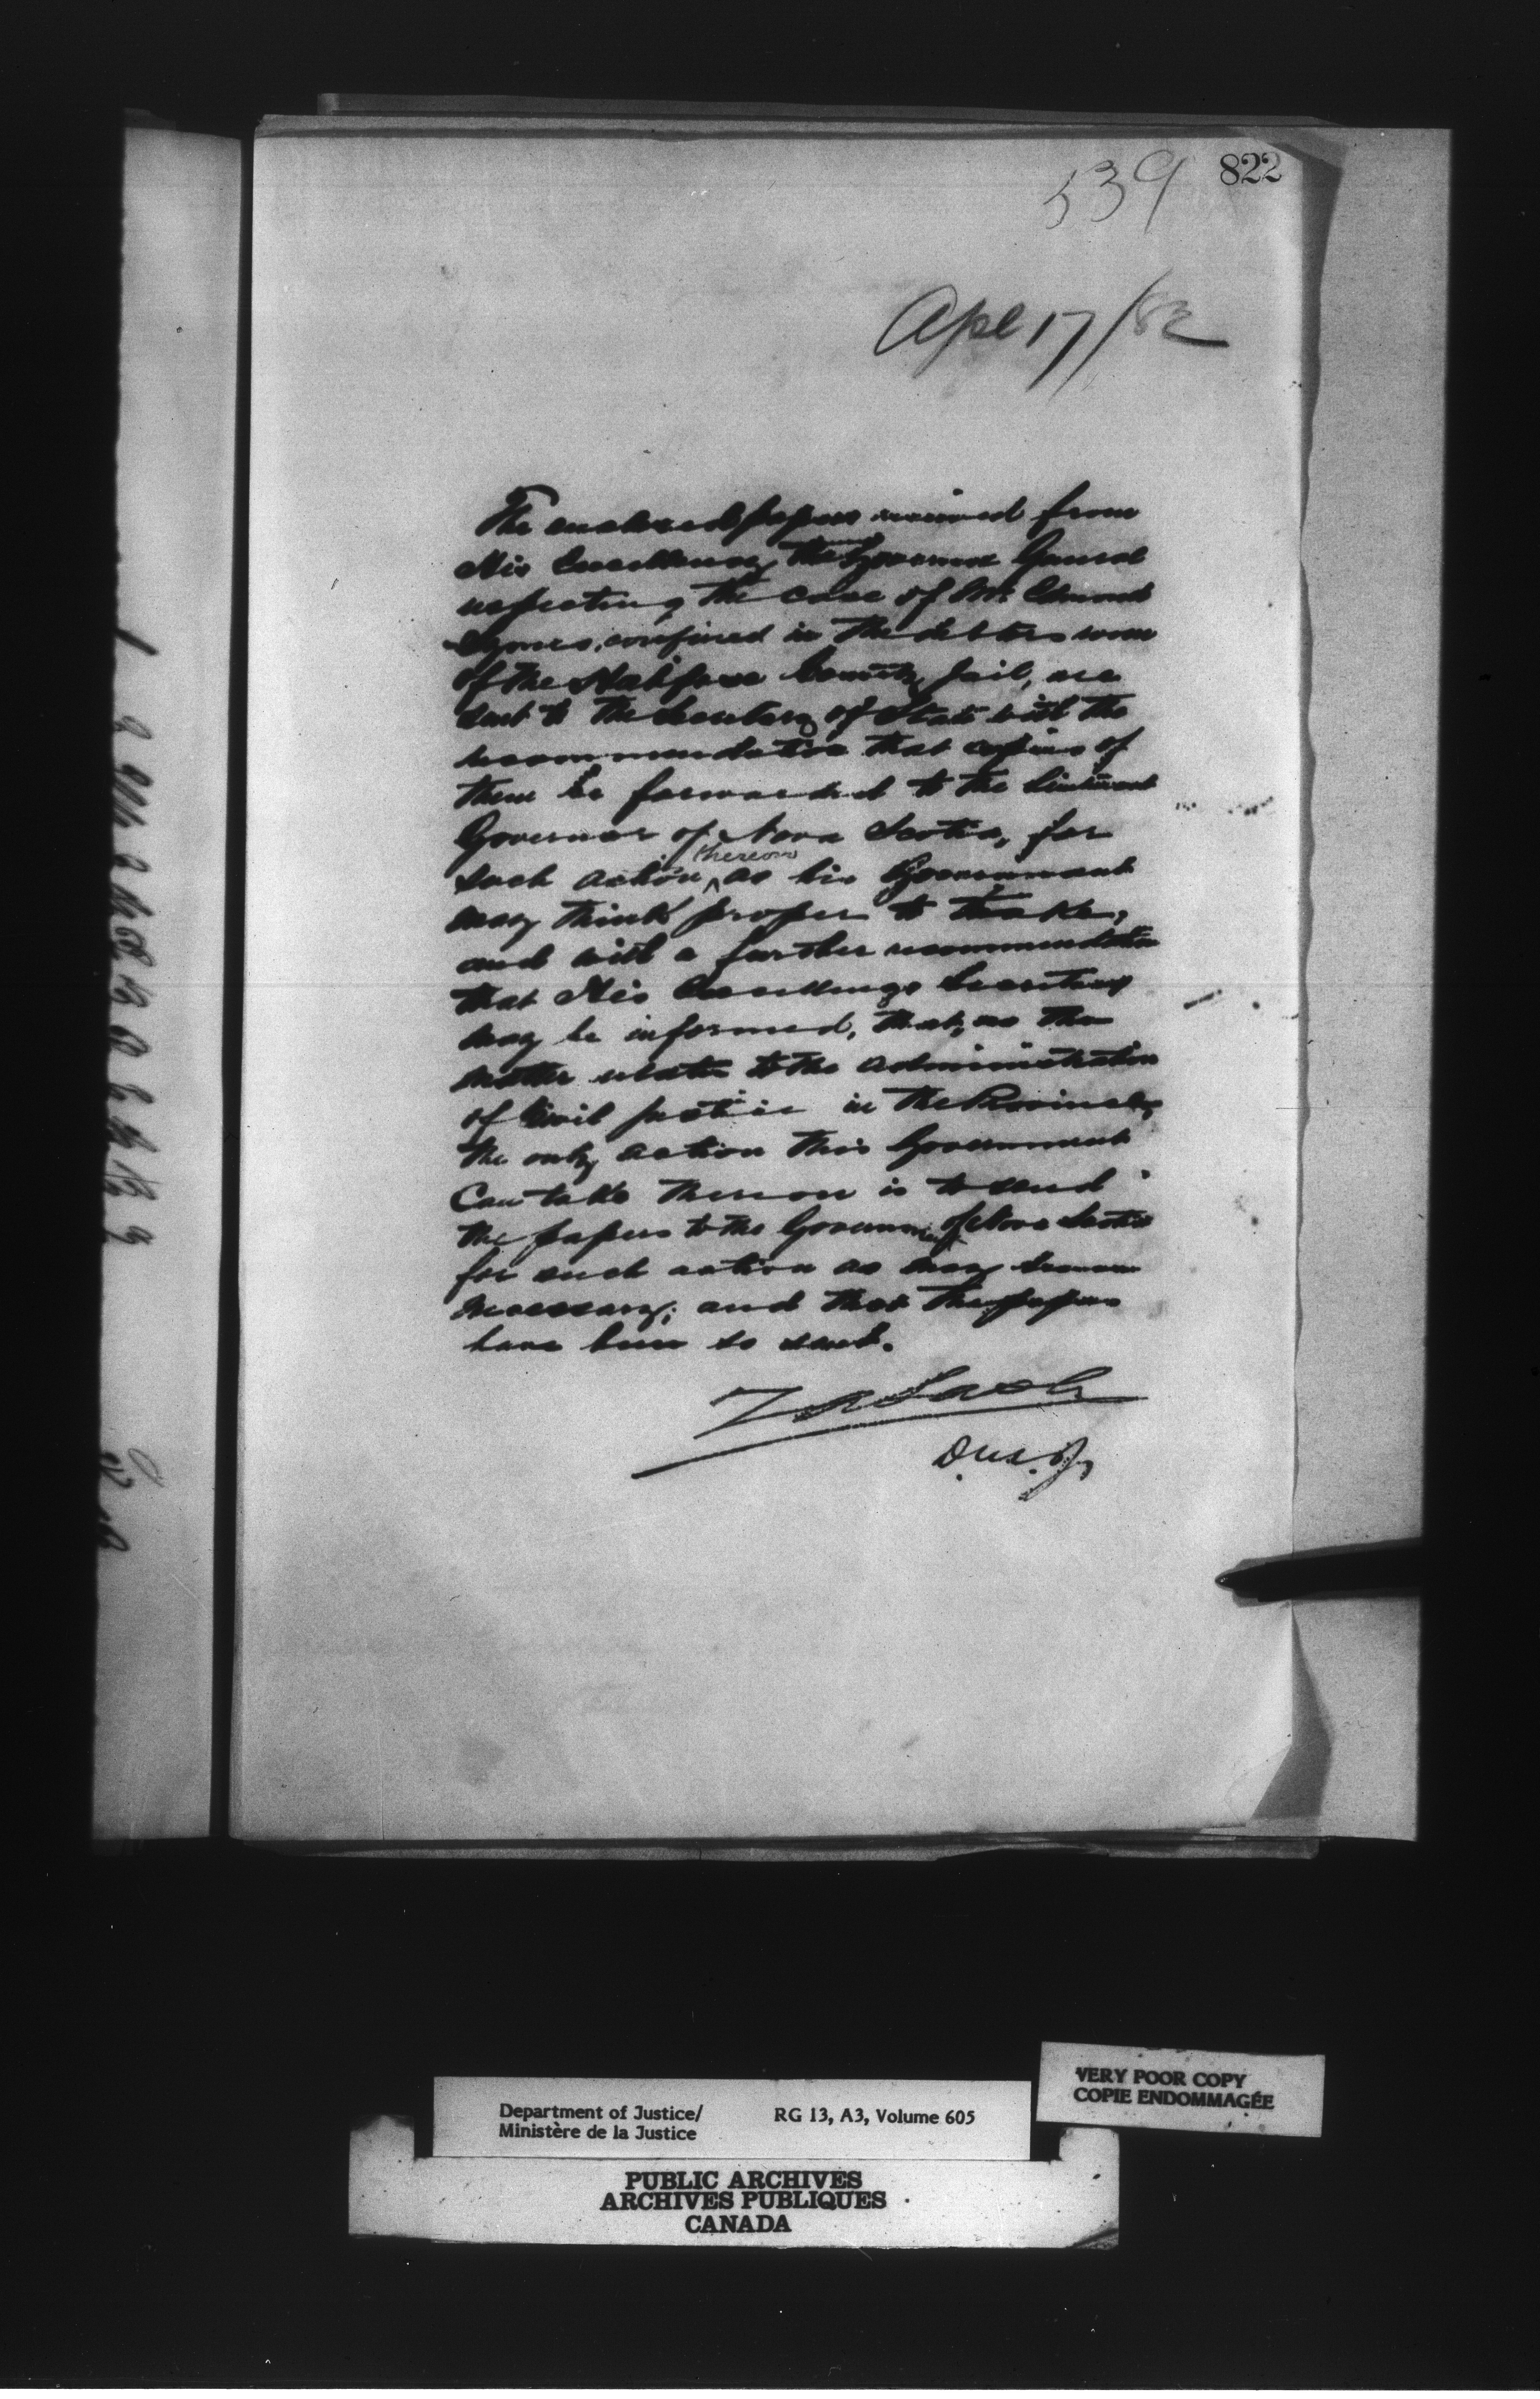 822
539
Apl 17/82
The enclosed papers received from
His Excellency the Governor General
respecting the case of Mr. Edmund
confined in the debtors room
of the Halifax County Jail, are
sent to the Secretary of State with the
recommendation that copies of
them be forwarded to the Lieutenant
Governor of Nova Scotia, for
such action thereon as his Government
may think proper to take,
and with a further recommendation
that His Excellency's Secretary
may be informed, that, as the
matter relates to the administration
of Civil justice in the Province,
the only action this Government
can take thereon is to send
the papers to the Government of Nova Scotia
for such action as may seem
necessary; and that the papers
have been so sent.
Z A Lash
D.M.J.
VERY POOR COPY
COPIE ENDOMMAGÉE
Department of Justice/ RG 13, A3, Volume 605
Ministère de la Justice
PUBLIC ARCHIVES
ARCHIVES PUBLIQUES
CANADA